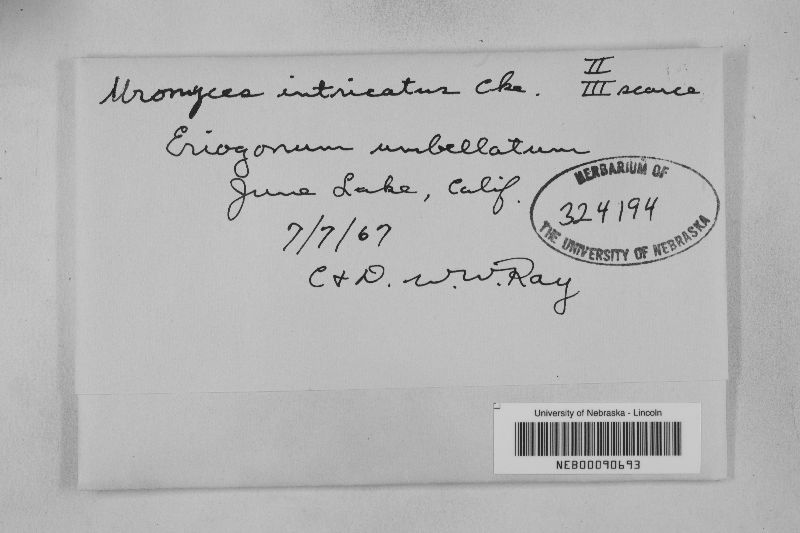 Uromyces intricatus Cke. II
III scarce
Eriogonum umbellatum
June Lake, Calif.
7/7/67
C & D. W.W. Ray
HERBARIUM OF
324194
THE UNIVERSITY OF NEBRASKA
University of Nebraska - Lincoln
NEB00090693